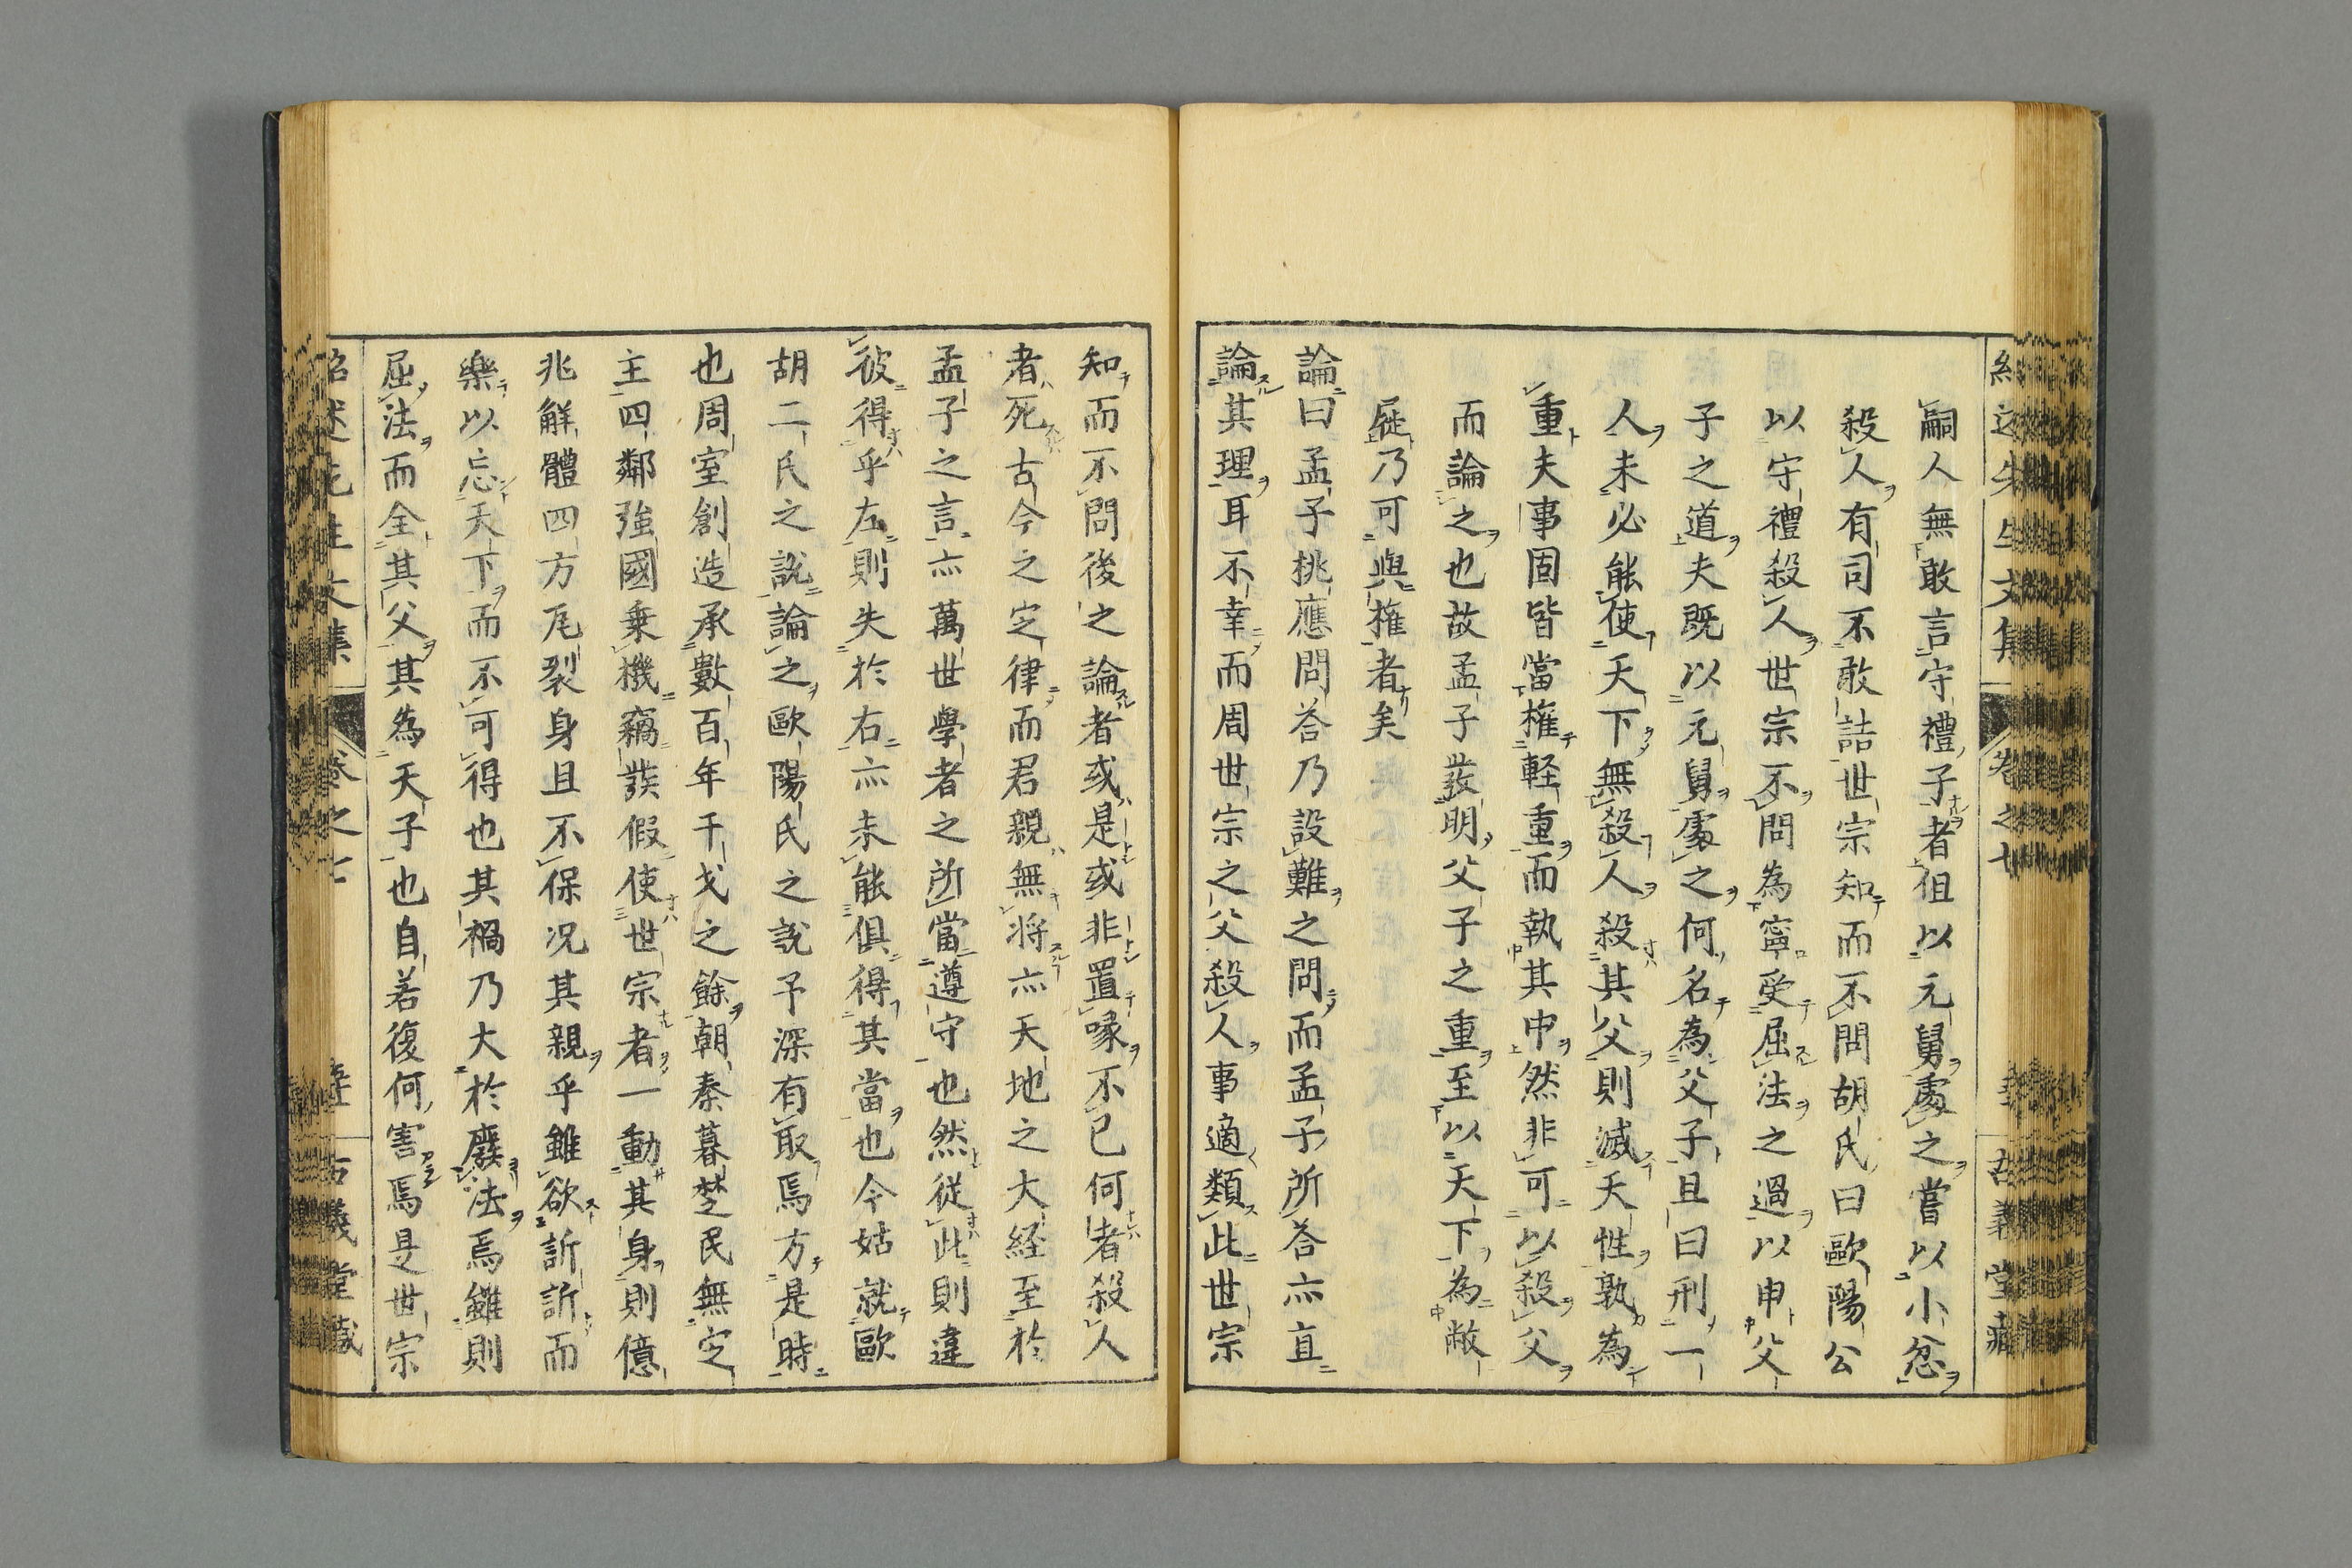 嗣人無敢言守禮子者徂以元舅處之嘗以小忿
殺人有司不敢詰世宗知而不問胡氏曰歐陽公
以守禮殺人世宗不問為寧受屈法之過以申父
子之道夫既以元舅處之何名為父子且曰刑一
人未必能使天下無殺人殺其父則滅天性孰為
重夫事固皆當権軽重而執其中然非可以殺父
而論之也故孟子發明父子之重至以天下為敝
屣乃可與権者矣
論曰孟子桃應問荅乃設難之問而孟子所荅亦直
論其理耳不幸而周世宗之父殺人事適類此世宗
知而不問後之論者或是或非置喙不已何者殺人
者死古今之定律而君親無将亦天地之大経至於
孟子之言亦萬世學者之所當遵守也然従此則違
彼得乎左則失於右亦未能俱得其當也今姑就歐
胡二氏之説論之歐陽氏之説予深有取焉方是時
也周室創造承數百年干戈之餘朝秦暮楚民無定
主四鄰強國乗機竊發假使世宗者一動其身則億
兆觧體四方瓦裂身且不保况其親乎雖欲訢訢而
樂以忘天下而不可得也其禍乃大於廢法焉雖則
屈法而全其父其為天子也自若復何害焉是世宗
紹述先生文集 卷之七 古義堂藏